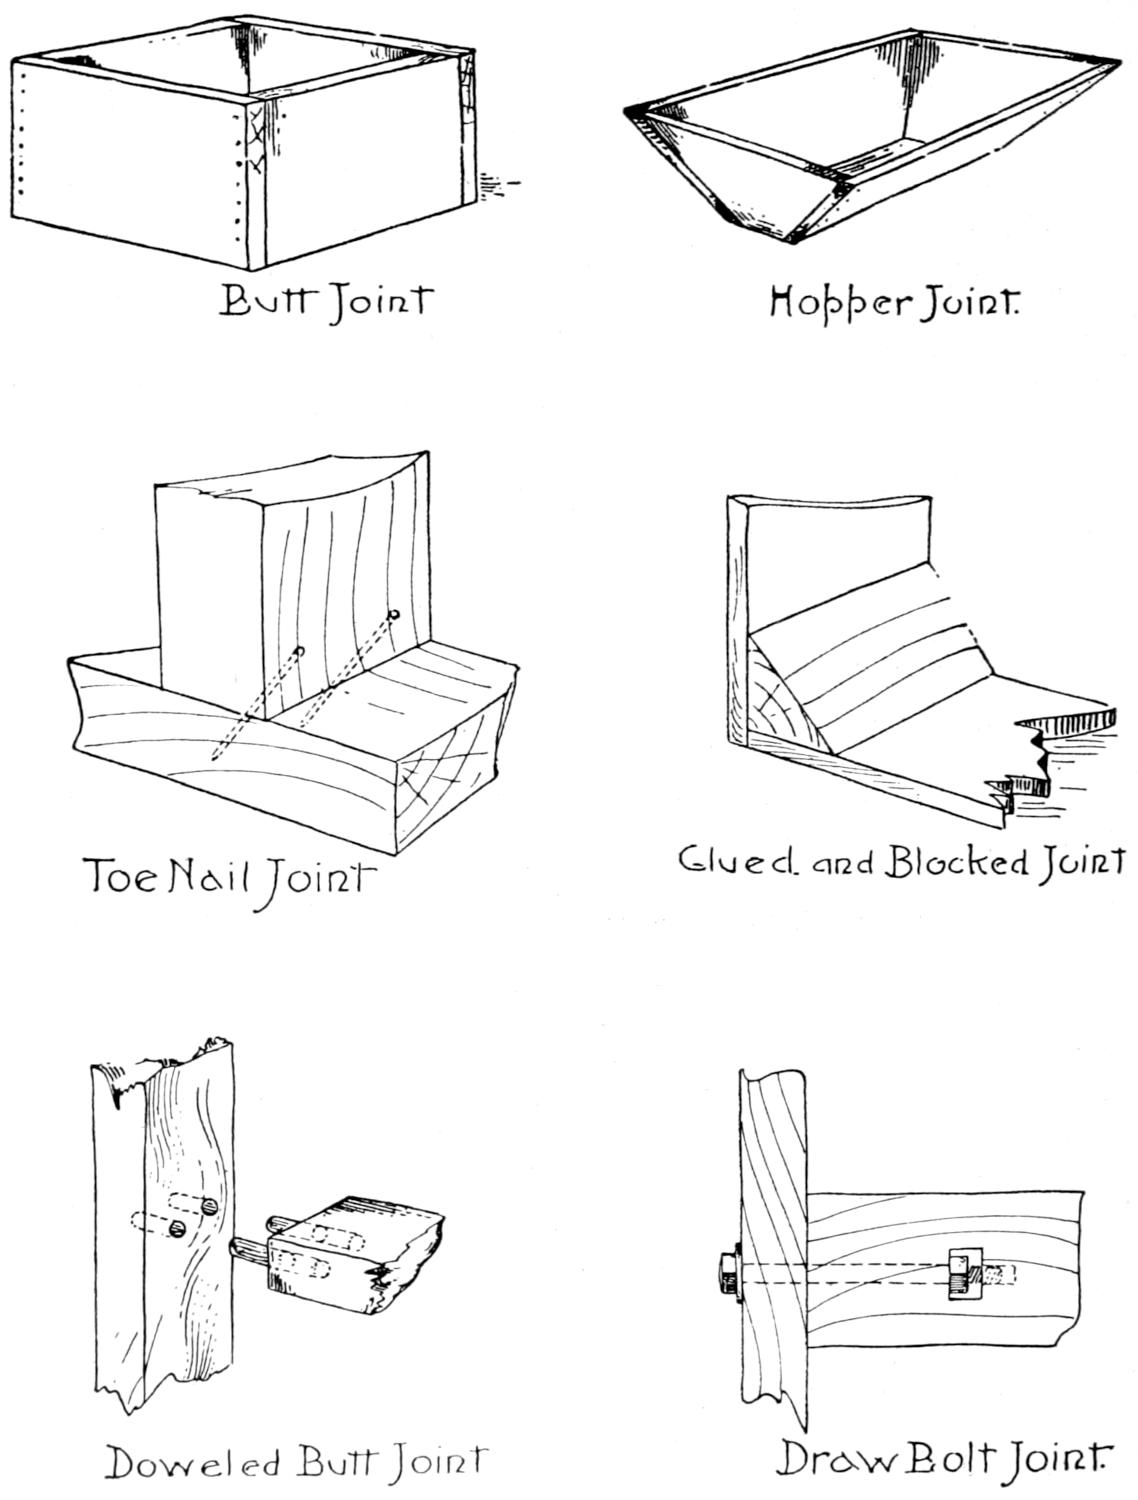 Butt Joint
Hopper Joint.
Toe Nail Joint
Glued. and Blocked Joint
Doweled Butt Joint
Draw Bolt Joint.